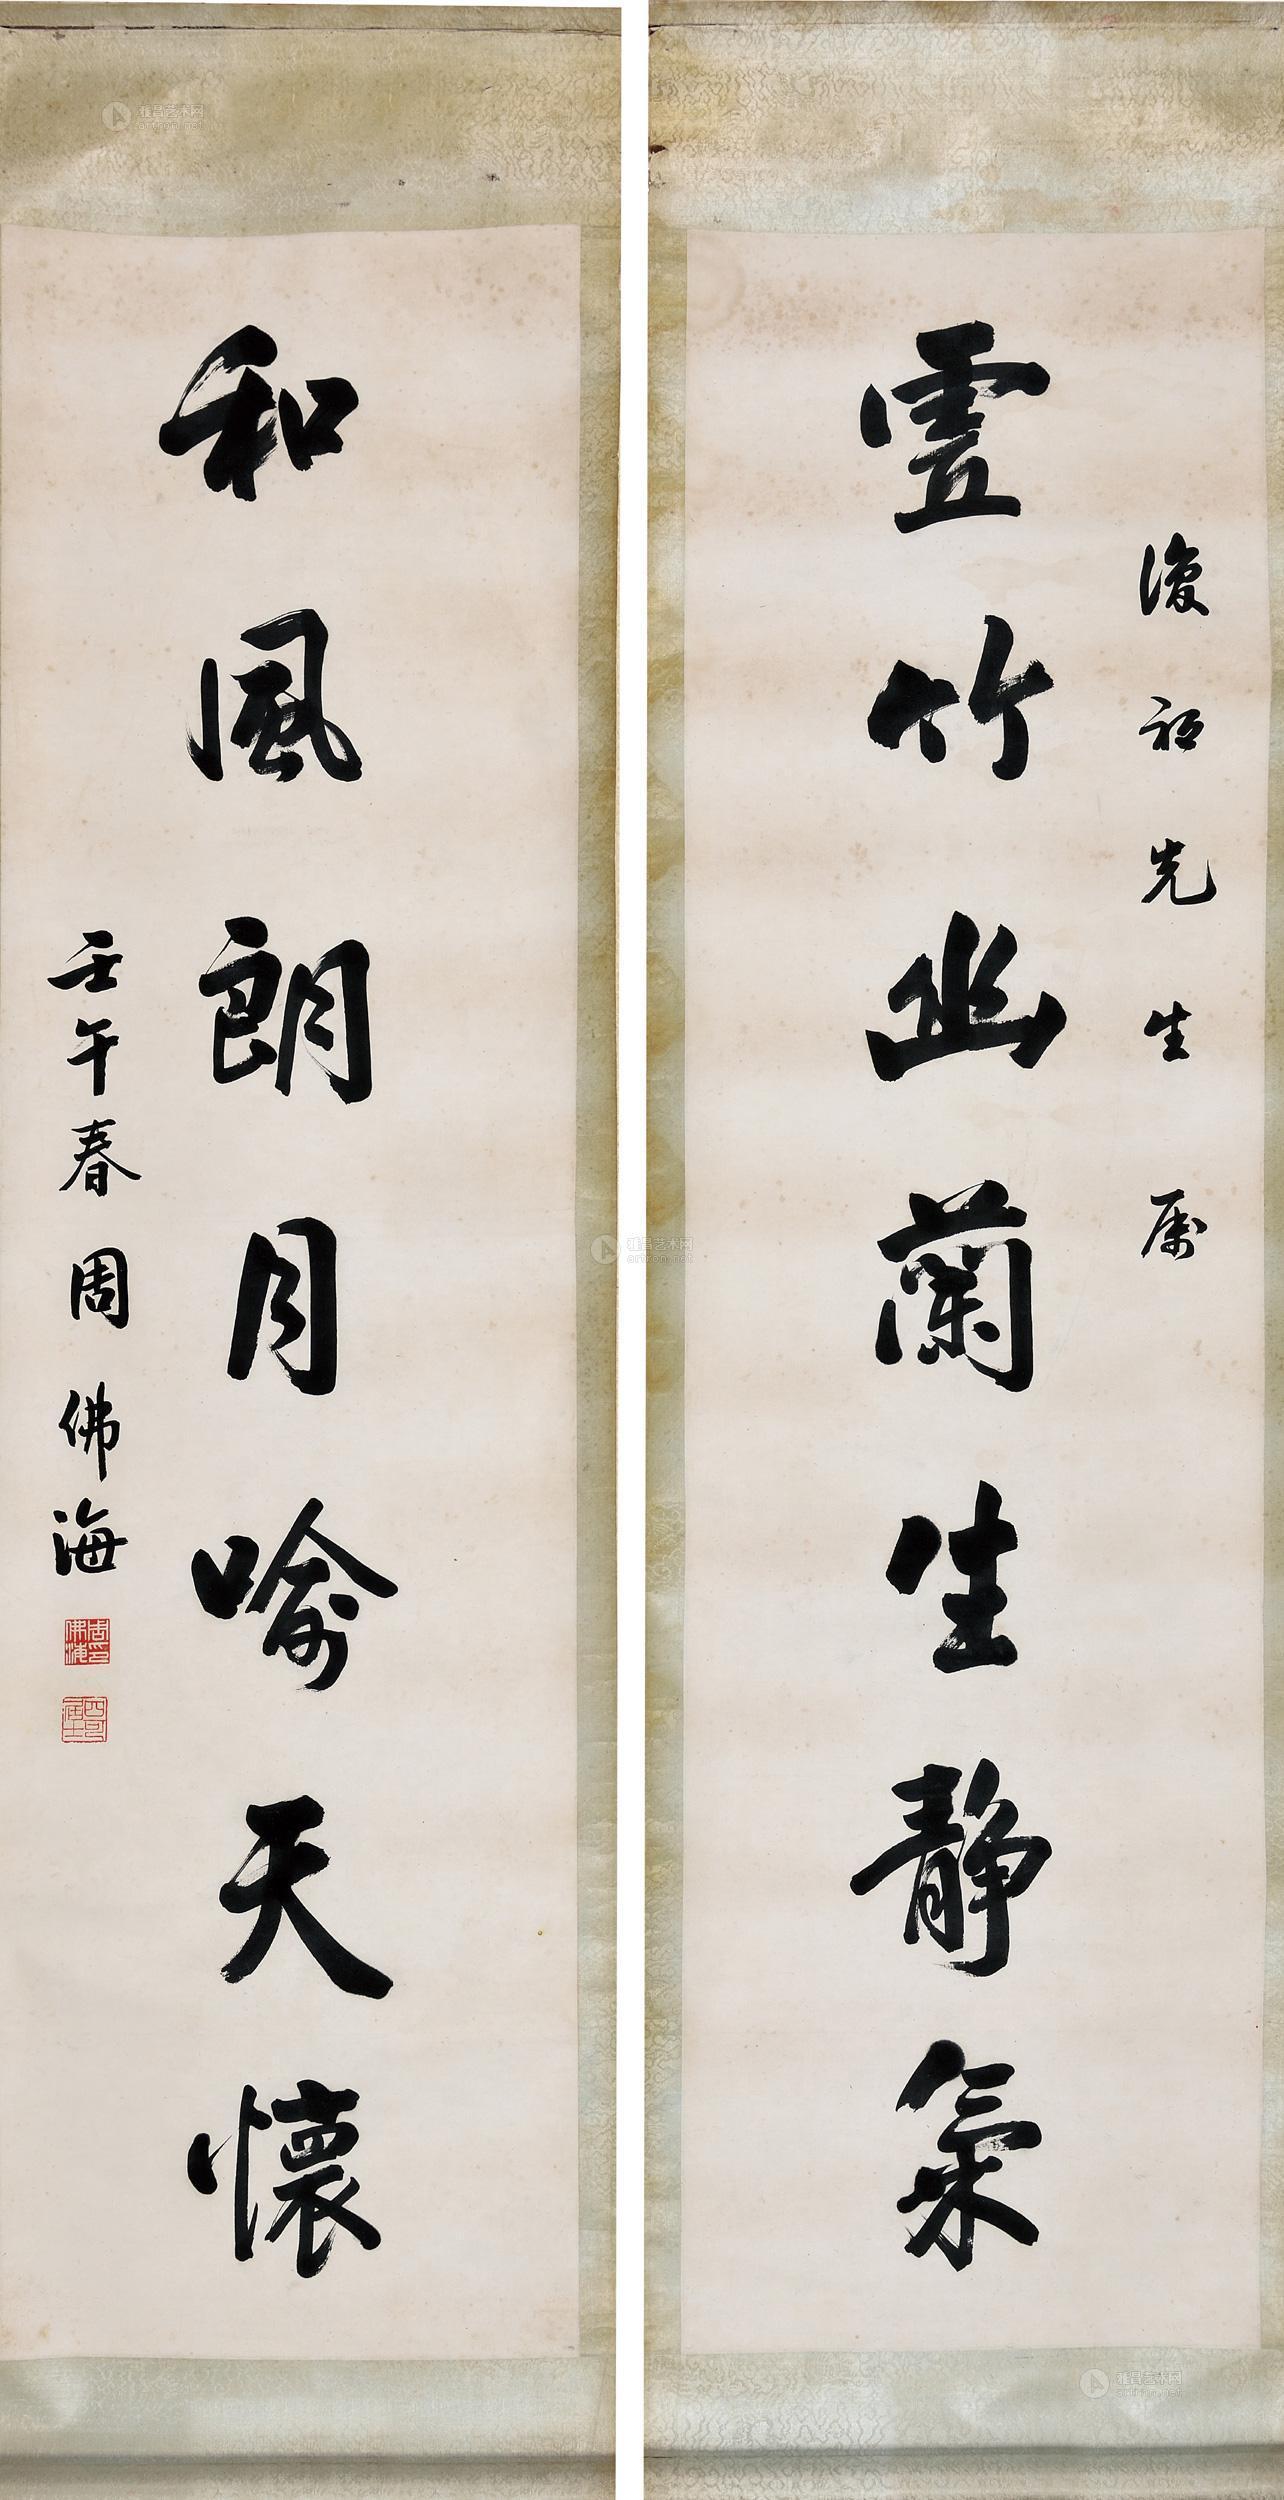 復初先生属
霊竹幽蘭生靜氣
和風朗月喻天懷
壬午春 周佛海
周佛海印
四可居士
雅昌艺术网
artron.net
雅昌艺术网
artron.net
雅昌艺术网
artron.net